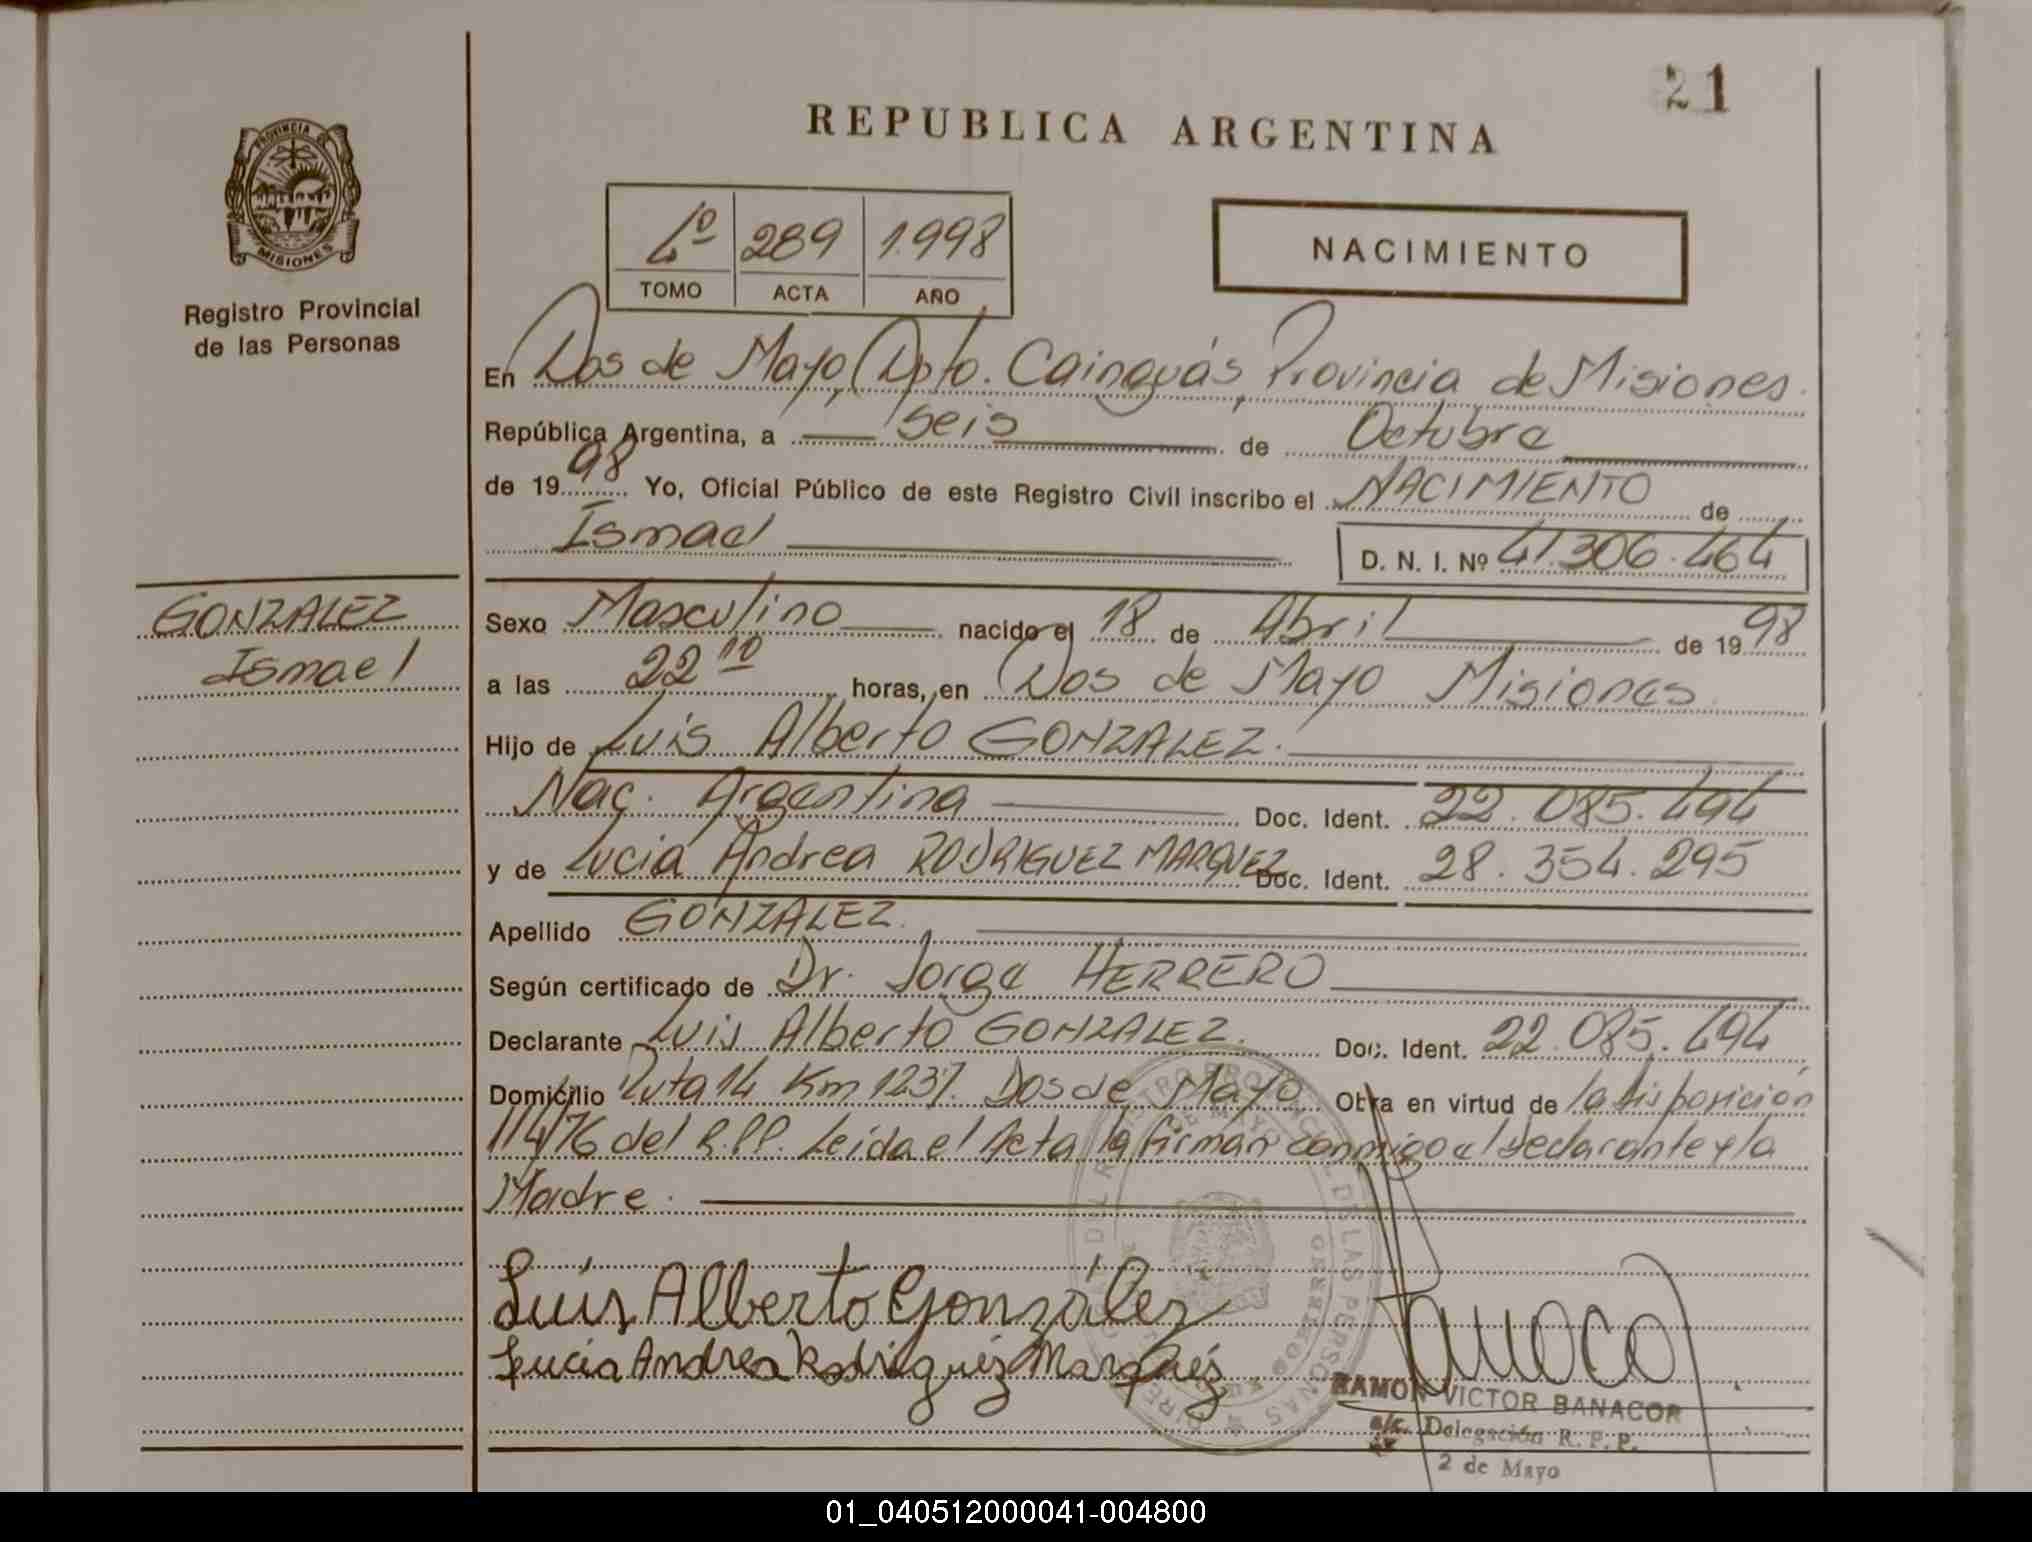 21
REPUBLICA ARGENTINA
PROVINCIA
MISIONES
Registro Provincial
de las Personas
4º 289 1.998
TOMO ACTA AÑO
NACIMIENTO
En Dos de Mayo, Dpto. Cainguás, Provincia de Misiones.
República Argentina, a seis de Octubre
de 1998 Yo, Oficial Público de este Registro Civil inscribo el NACIMIENTO de
Ismael D. N. I. Nº 41.306.464
GONZALEZ
Ismael
Sexo Masculino nacido el 18 de Abril de 1998
a las 22 10 horas, en Dos de Mayo Misiones
Hijo de Luis Alberto GONZALEZ.
Nac. Argentina Doc. Ident. 22.085.494
y de Lucia Andrea RODRIGUEZ MARQUEZ Doc. Ident. 28.354.295
Apellido GONZALEZ.
Según certificado de Dr. Jorge HERRERO
Declarante Luis Alberto GONZALEZ. Doc. Ident. 22.085.494
Domicilio Ruta 14 Km 1237. Dos de Mayo Obra en virtud de la disposición
114/76 del R.P.P. Leida el Acta la firman conmigo el declarante y la
Madre.
Luis Alberto González
Lucia Andrea Rodriguez Marquéz
RAMON VICTOR BANACOR
a/c. Delegación R. P. P.
2 de Mayo
01_040512000041-004800